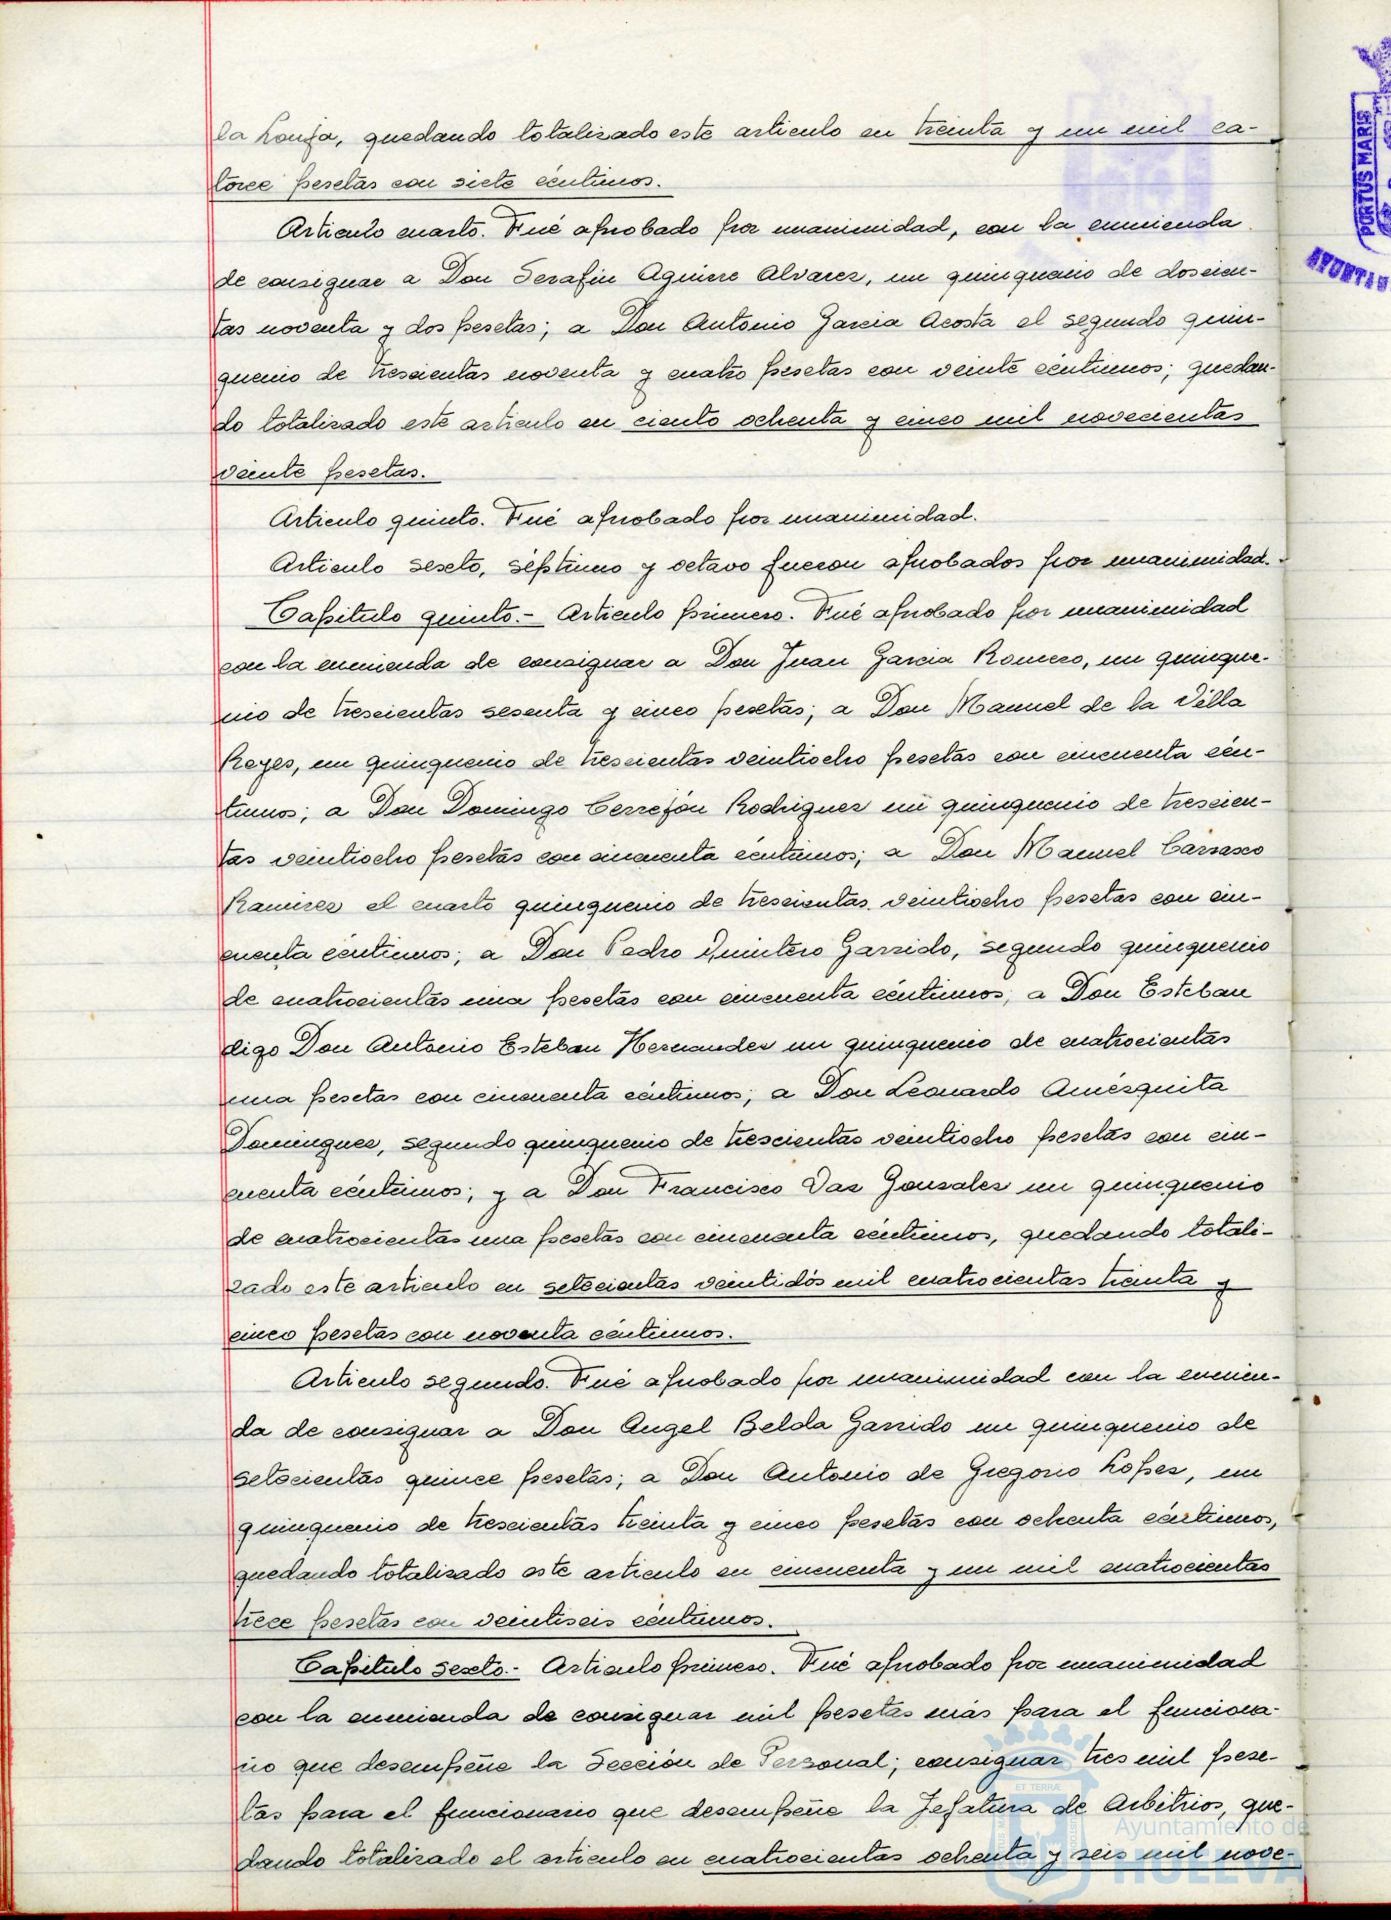 la Lonja, quedando totalizado este articulo en treinta y un mil ca-
torce pesetas con siete céntimos.
Articulo cuarto. Fué aprobado por unanimidad, con la enmienda
de consignar a Don Serafin Aguirre Alvarez, un quinquenio de doscien-
tas noventa y dos pesetas; a Don Antonio Garcia Acosta el segundo quin-
quenio de trescientas noventa y cuatro pesetas con veinte céntimos; quedan-
do totalizado este articulo en ciento ochenta y cinco mil novecientas
veinte pesetas.
Articulo quinto. Fué aprobado por unanimidad.
Articulo sexto, séptimo y octavo fueron aprobados por unanimidad.
Capitulo quinto.- Articulo primero. Fué aprobado por unanimidad
con la enmienda de consignar a Don Juan Garcia Romero, un quinque-
nio de trescientas sesenta y cinco pesetas; a Don Manuel de la Villa
Reyes, un quinquenio de trescientas veintiocho pesetas con cincuenta cén-
timos; a Don Domingo Cerrejón Rodriguez un quinquenio de trescien-
tas veintiocho pesetas con cincuenta céntimos; a Don Manuel Carrasco
Ramirez el cuarto quinquenio de trescientas veintiocho pesetas con cin-
cuenta céntimos; a Don Pedro Quintero Garrido, segundo quinquenio
de cuatrocientas una pesetas con cincuenta céntimos; a Don Esteban
digo Don Antonio Esteban Hernandez un quinquenio de cuatrocientas
una pesetas con cincuenta céntimos; a Don Leonardo Amézquita
Dominguez, segundo quinquenio de trescientas veintiocho pesetas con cin-
cuenta céntimos; y a Don Francisco Vaz Gonzalez un quinquenio
de cuatrocientas una pesetas con cincuenta céntimos, quedando totali-
zado este articulo en setecientas veintidós mil cuatrocientas treinta y
cinco pesetas con noventa céntimos.
Articulo segundo. Fué aprobado por unanimidad con la enmien-
da de consignar a Don Angel Belda Garrido un quinquenio de
setecientas quince pesetas; a Don Antonio de Gregorio Lopez, un
quinquenio de trescientas treinta y cinco pesetas con ochenta céntimos,
quedando totalizado este articulo en cincuenta y un mil cuatrocientas
trece pesetas con veintiseis céntimos.
Capitulo sexto.- Articulo primero. Fué aprobado por unanimidad
con la enmienda de consignar mil pesetas más para el funciona-
rio que desempeñe la Sección de Personal; consignar tres mil pese-
tas para el funcionario que desempeñe la Jefatura de Arbitrios, que-
dando totalizado el articulo en cuatrocientas ochenta y seis mil nove-
PORTUS MARIS
Ayuntamiento de
HUELVA